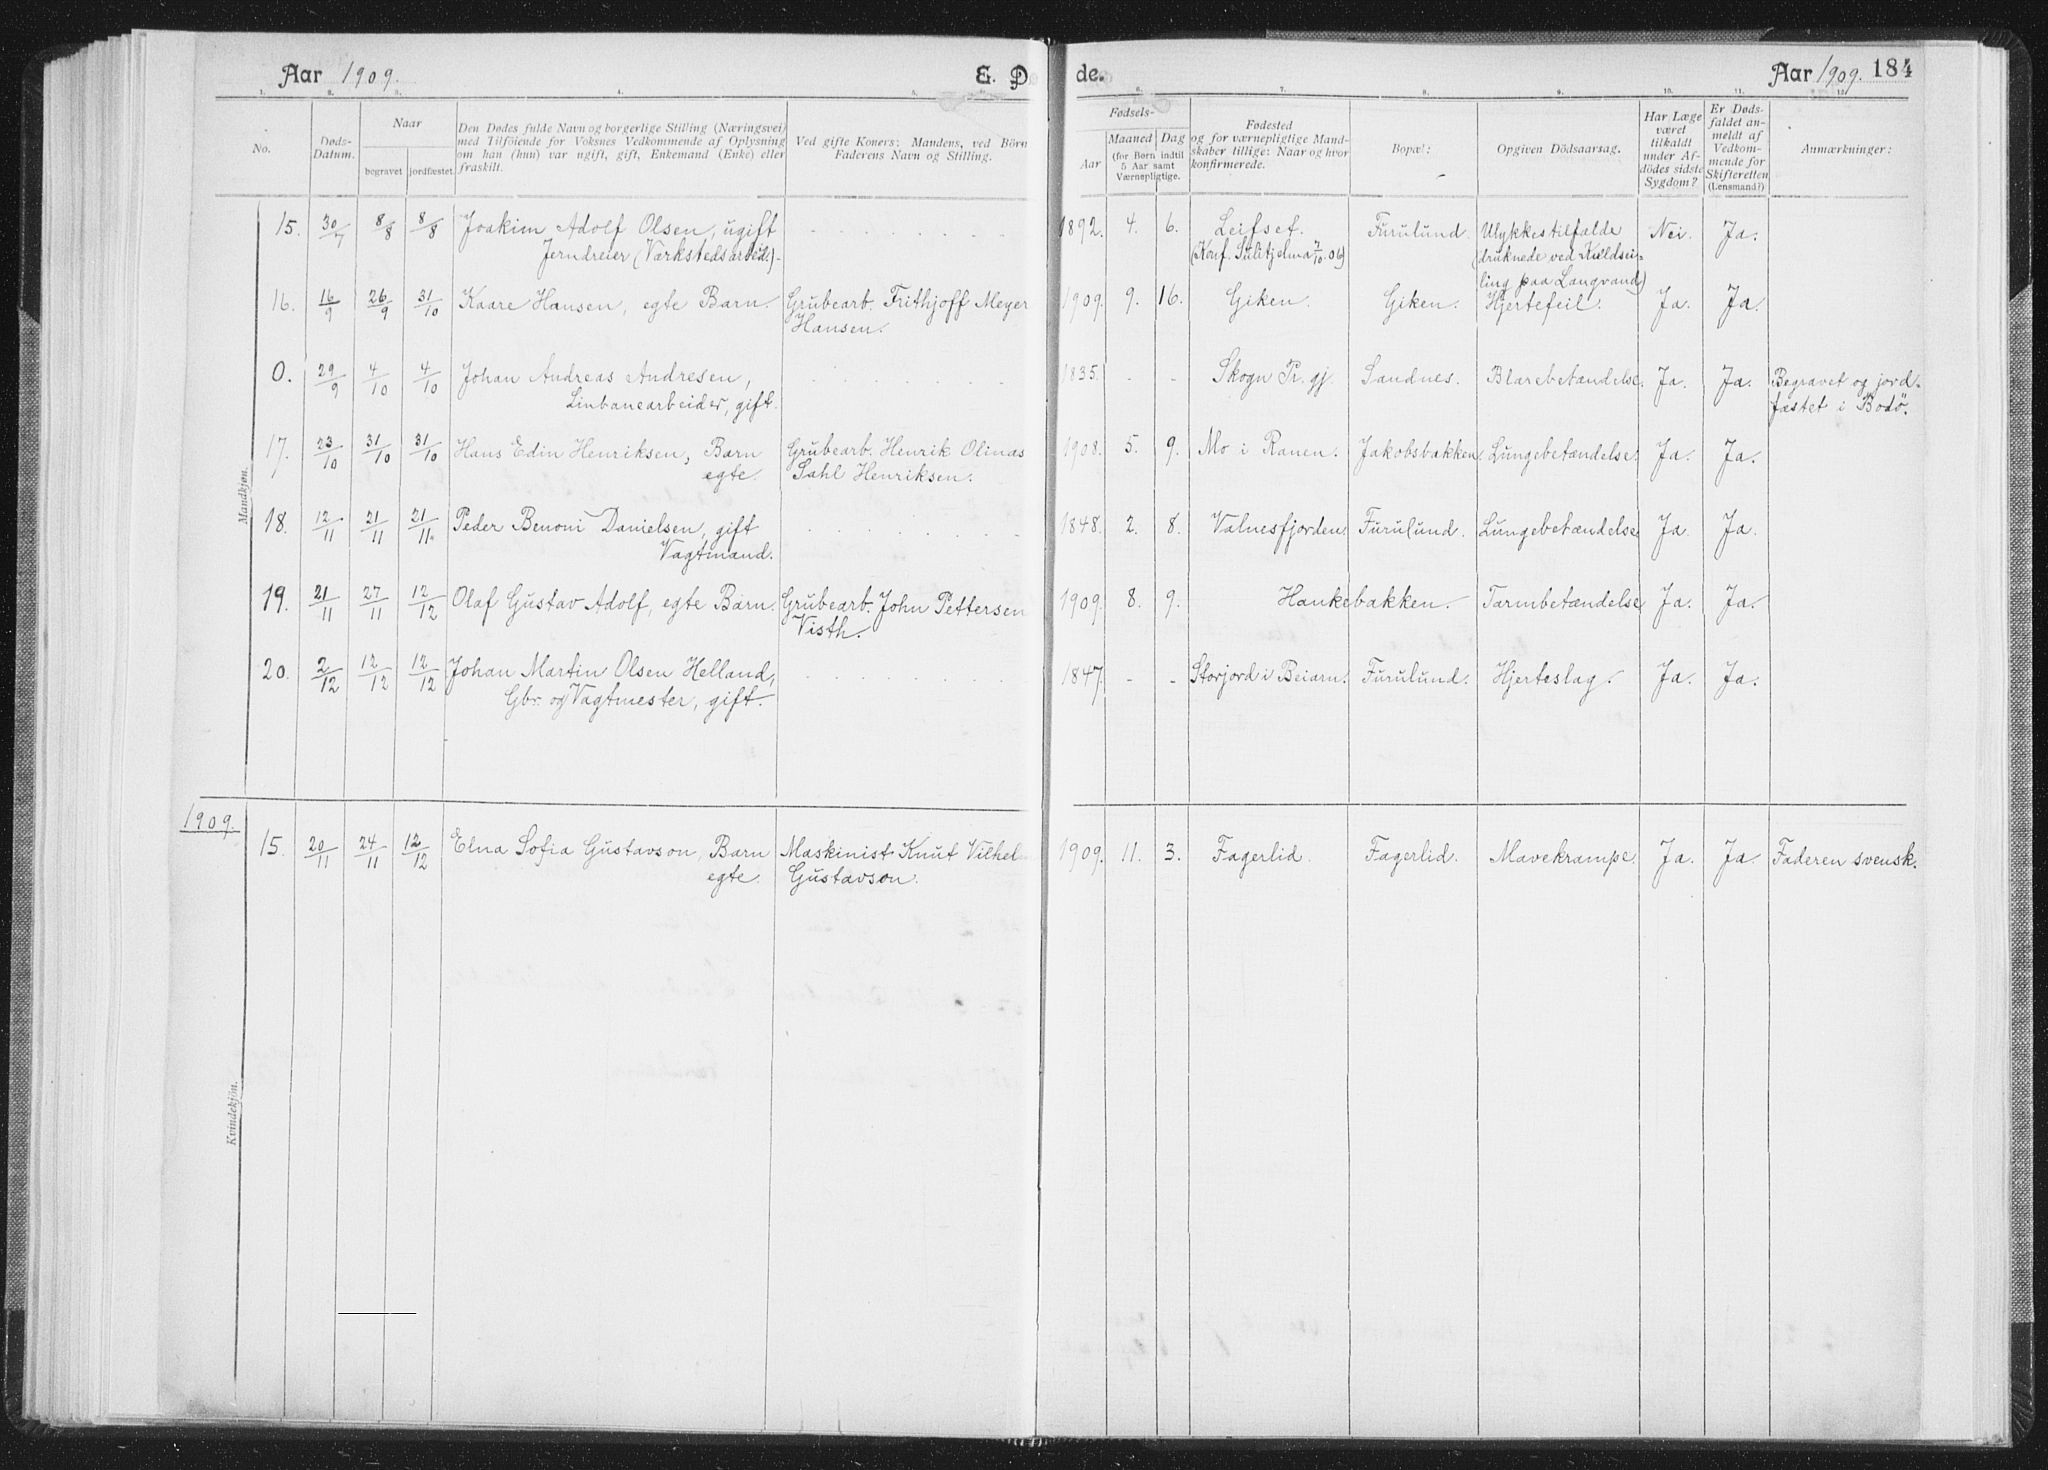 Aar 1909. E. D de. Aar 1909. 184
1. 2. 3. 4. 5. 6. 7. 8. 9. 10. 11. 12.
No.
Døds-Datum.
Naar
begravet jordfæstet.
Den Dødes fulde Navn og borgerlige Stilling (Næringsvei)
med Tilföiende for Voksnes Vedkommende af Oplysning
om han (hun) var ugift, gift, Enkemand (Enke) eller
fraskilt.
Ved gifte Koners: Mandens, ved Börn
Faderens Navn og Stilling.
Fødsels-
Aar
Maaned Dag
(for Børn indtil
5 Aar samt
Værnepligtige.
Fødested
og for værnepligtige Mand-
skaber tillige: Naar og hvor
konfirmerede.
Bopæl:
Opgiven Dödsaarsag.
Har Læge
været
tilkaldt
under Af-
dödes sidste
Sygdom?
Er Døds-
faldet an-
meldt af
Vedkom-
mende for
Skifteretten
(Lensmand?)
Anmærkninger:
Mandkjøn.
15. 30/7 8/8 8/8 Joakim Adolf Olsen, ugift 1892. 4. 6. Leifset. Furulund. Ulykkestilfælde Nei. Ja.
Jerndreier (Værkstedsarbeid.) (Konf. Sulitjelma 7/10.06) (druknede ved Kuldsei-
ling paa Langvand)
16. 16/9 26/9 31/10 Kaare Hansen, egte Barn. Grubearb. Frithjoff Meyer 1909. 9. 16. Giken. Giken. Hjertefeil. Ja. Ja.
Hansen.
0. 29/9 4/10 4/10 Johan Andreas Andresen, 1835. - - Skogn Pr. gj. Sandnes. Blærebetændelse. Ja. Ja. Begravet og jord-
Linbanearbeider, gift. fæstet i Bodö.
17. 23/10 31/10 31/10 Hans Edin Henriksen, Barn Grubearb. Henrik Olinas 1908. 5. 9. Mo i Ranen. Jakobsbakken. Lungebetændelse. Ja. Ja.
egte. Sahl Henriksen.
18. 12/11 21/11 21/11. Peder Benoni Danielsen, gift 1848. 2. 8. Valnesfjorden. Furulund. Lungebetændelse Ja. Ja.
Vagtmand.
19. 21/11 27/11 12/12 Olaf Gustav Adolf, egte Barn. Grubearb. John Pettersen 1909. 8. 9. Hankebakken. Tarmbetændelse Ja. Ja.
Visth.
20. 2/12 12/12 12/12 Johan Martin Olsen Helland, 1847. - - Storjord i Beiarn. Furulund. Hjerteslag. Ja. Ja.
Gbr. og Vagtmester, gift.
1909.
15. 20/11 24/11 12/12 Elna Sofia Gustavson, Barn Maskinist Knut Vilhel 1909. 11. 3. Fagerlid. Fagerlid. Mavekrampe. Ja. Ja. Faderen svensk.
egte. Gustavson.
Kvindekjön.